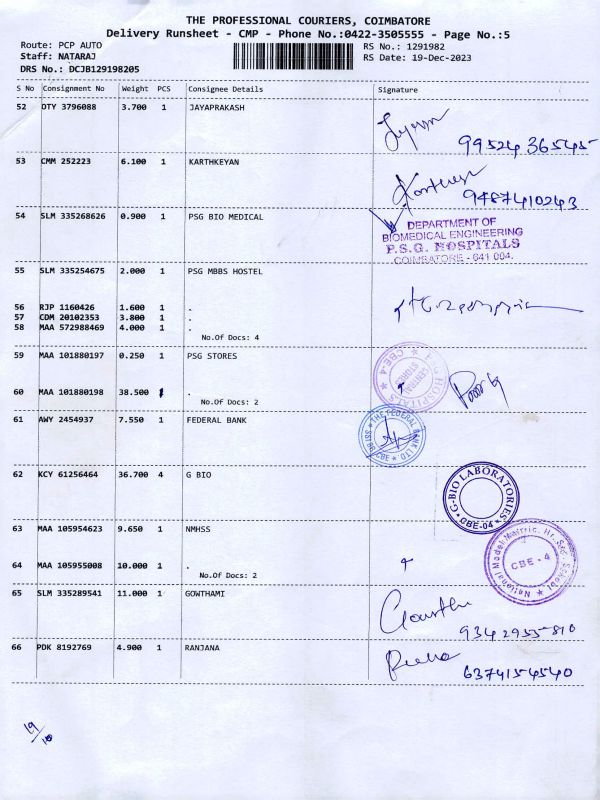 THE PROFESSIONAL COURIERS, COIMBATORE
Delivery Runsheet - CMP - Phone No.:0422-3505555 - Page No.:5
Route: PCP AUTO RS No.: 1291982
Staff: NATARAJ RS Date: 19-Dec-2023
DRS No.: DCJB129198205
S No Consignment No Weight PCS Consignee Details Signature
52 OTY 3796088 3.700 1 JAYAPRAKASH
99524 36545
53 CMM 252223 6.100 1 KARTHKEYAN
9487410243
54 SLM 335268626 0.900 1 PSG BIO MEDICAL
DEPARTMENT OF
BIOMEDICAL ENGINEERING
P.S.G. HOSPITALS
COIMBATORE - 641 004.
55 SLM 335254675 2.000 1 PSG MBBS HOSTEL
56 RJP 1160426 1.600 1 .
57 CDM 20102353 3.800 1 .
58 MAA 572988469 4.000 1 .
No.Of Docs: 4
59 MAA 101880197 0.250 1 PSG STORES
CENTRAL STORES
CBE-4
60 MAA 101880198 38.500 1 .
No.Of Docs: 2
61 AWY 2454937 7.550 1 FEDERAL BANK
THE FEDERAL BANK LTD
CBE
62 KCY 61256464 36.700 4 G BIO
G-BIO LABORATORIES
CBE-04
63 NMHSS MAA 105954623 9.650 1
National Model Matric. Hr. Sec. School
CBE - 4
64 MAA 105955008 10.000 1 .
No.Of Docs: 2
65 SLM 335289541 11.000 1 GOWTHAMI
9342955810
66 PDK 8192769 4.900 1 RANJANA
6374154540